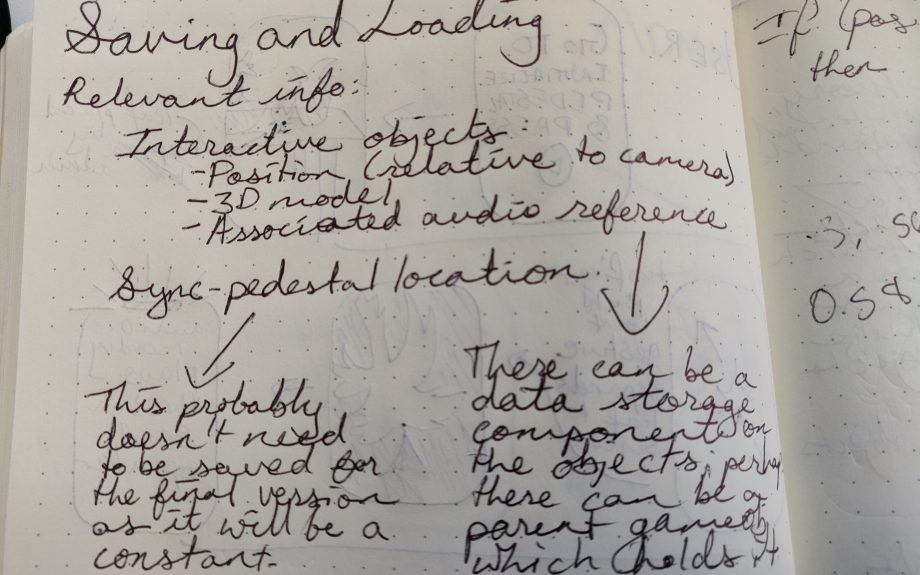 Saving and Loading
Relevant info:
Interactive objects:
-Position (relative to camera)
-3D model
-Associated audio reference
Sync-pedestal location.
This probably
doesn't need
to be saved for
the final version
as it will be a
constant.
There can be a
data storage
component on
the objects, perhap
there can be a
parent gameobj
which holds it
If (pos
then
.3, 
0.58